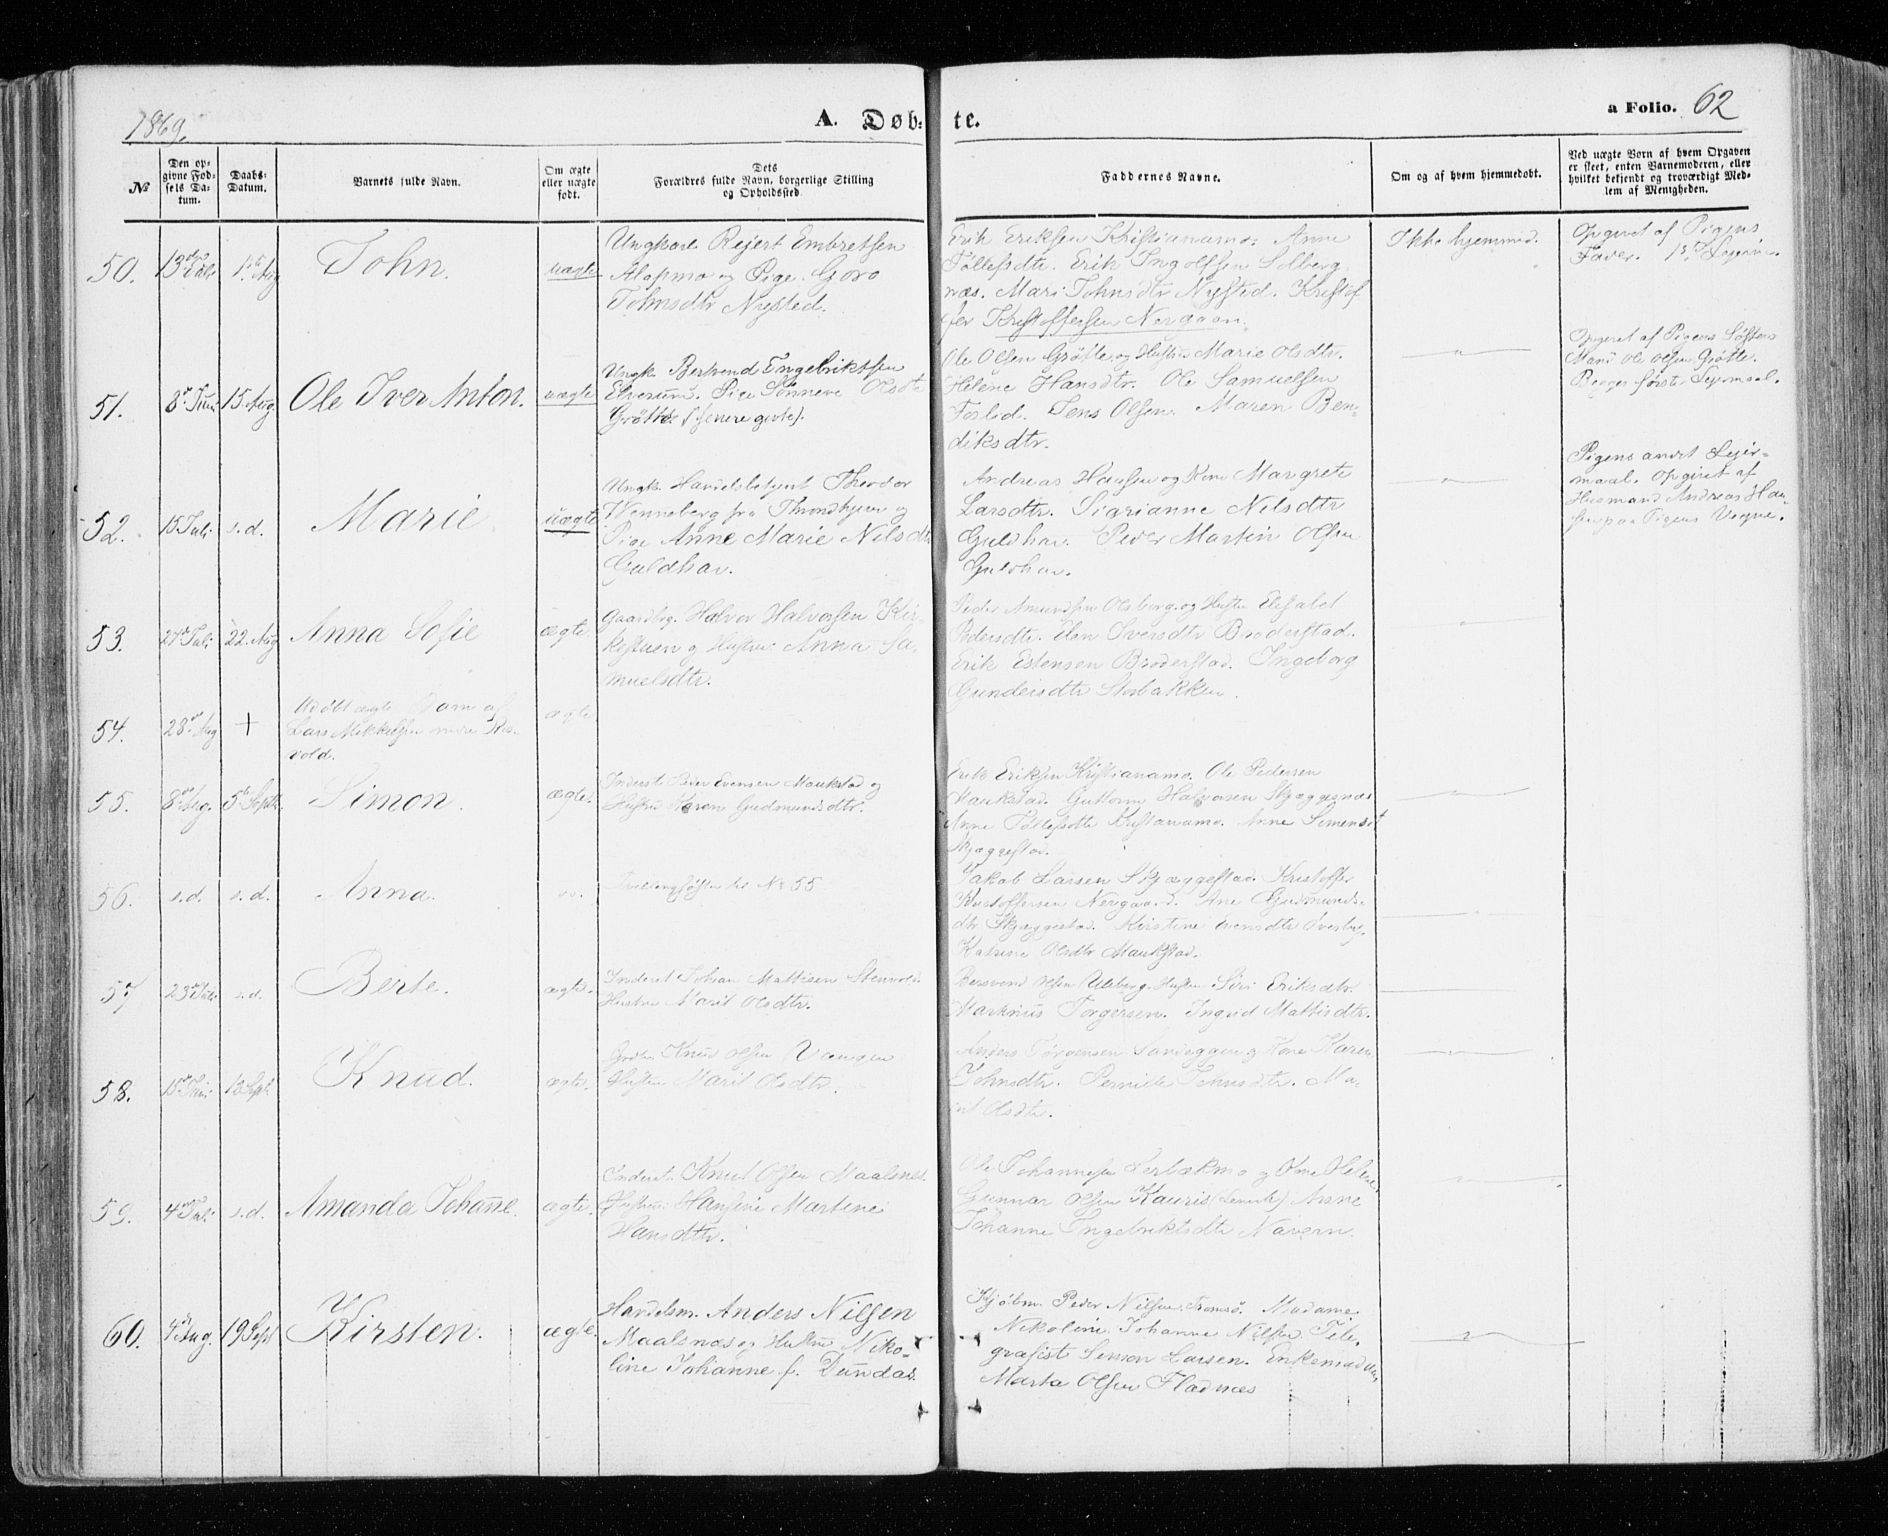 1869.
A. Døb- te.
a Folio. 62
№
Den op-
givne Fød-
sels Da-
tum.
Daabs-
Datum.
Barnets fulde Navn.
Om ægte
eller uægte
født.
Dets
Forældres fulde Navn, borgerlige Stilling
og Opholdssted
Faddernes Navne.
Om og af hvem hjemmedøbt.
Ved uægte Børn af hvem Opgaven
er skeet, enten Barnemoderen, eller
hvilket bekjendt og troværdigt Med-
lem af Menigheden.
50. 13de Juli 1ste Aug John. uægte
Ungkarl Rejert Embretsen
Alapmo og Pige Goro
Johnsdtr Nysted.
Erik Eriksen Kristianamo. Anne
Tollefsdtr. Erik Ingolfsen Solberg
næs. Mari Johnsdtr Nysted. Kristof
fer Kristoffersen Nergaan.
Ikke hjemmed.
Opgivet af Pigens
Fader. 1ste Lejerm.
51. 8de Juni 15. Aug. Ole Iver Anton. uægte
Ungk. Bertvend Engebriktsen
Elverum. Pige Sønneve Olsdtr
Grøtte. (senere givte).
Ole Olsen Grøtte og Hustru Marie Olsdtr.
Helene Hansdtr. Ole Samuelsen
Foslid. Jens Olsen. Maren Ben-
diksdtr.
Opgivet af Pigens Søsters
Mand Ole Olsen Grøtte.
Begges første Lejermaal.
52. 15 Juli s.d. Marie uægte
Ungk. Handelsbetjent Theodor
Wenneberg fra Throndhjem og
Pige Anne Marie Nilsdtr
Guldhav.
Andreas Hansen og Kone Margrete
Larsdtr. Marianne Nilsdtr
Guldhav. Peder Martin Olsen
Guldhav.
Pigens andet Lejer-
maal. Opgivet af
Husmand Andreas Han-
sen paa Pigens Vegne.
53. 27de Juli 22. Aug Anna Sofie ægte.
Gaardbr. Halvor Halvorsen Kir-
kestuen og Hustru Anna Sa-
muelsdtr.
Peder Amundsen Olsborg og Hustru Elisabet
Pedersdtr. Elen Iversdtr Broderstad.
Erik Estensen Broderstad. Ingeborg
Gundersdtr Storbakken.
54. 28de Aug +
Udøbt ægte Barn af
Lars Mikkelsen nedre Ros-
vold. ægte
55. 8de Aug. 5te Septb. Simon. ægte.
Inderst Peder Evensen Maukstad og
Hustru Karen Gudmundsdtr.
Erik Eriksen Kristianamo. Ole Pedersen
Maukstad. Guttorm Halvorsen Skjæggenæs
Anne Tollefsdtr Kristianamo. Anne Simensdt
Skjæggestad.
56. s.d. s.d. Anna.
Tvillingsøster til No 55.
Jakob Larsen Skjæggestad. Kristoffer
Kristoffersen Nergaard. Ane Gudmunds-
dtr Skjæggestad. Kirstine Evensdtr Øverby.
Katrine Olsdtr Maukstad.
57 23de Juli s.d. Berte. ægte.
Inderst Johan Mattisen Stenvold
Hustru Marit Olsdtr.
Bersvend Olsen Uleberg. Hustru Siri Eriksdtr.
Marknus Torgersen. Ingrid Mattisdtr.
58. 15de Juni 12 Sept. Knud. ægte.
Grdbr. Knud Olsen Vangen
Hustru Marit Olsdtr.
Anders Jørgensen Sandeggen og Kone Karen
Johnsdtr. Pernille Johnsdtr. Ma-
rit Olsdtr.
59. 4de Juli s.d. Amanda Johanne. ægte.
Inderst Knut Olsen Maalsnes.
Hustru: Hansine Martine
Hansdtr.
Ole Johannesen Lerbækmo og Kone Helene.
Gunnar Olsen Kauris (Lenvik) Anne
Johanne Ingebriktsdtr Navern.
60. 4de Aug. 19 Sept Kirsten. ægte.
Handelsm. Anders Nilsen
Maalsnæs og Hustru Niko-
line Johanne f. Dundas.
Kjøbm. Peder Nilsen, Tromsø. Madame
Nikoline Johanne Nilsen. Tele-
grafist Simon Larsen. Enkemadam
Marta Olsen Fladnæs